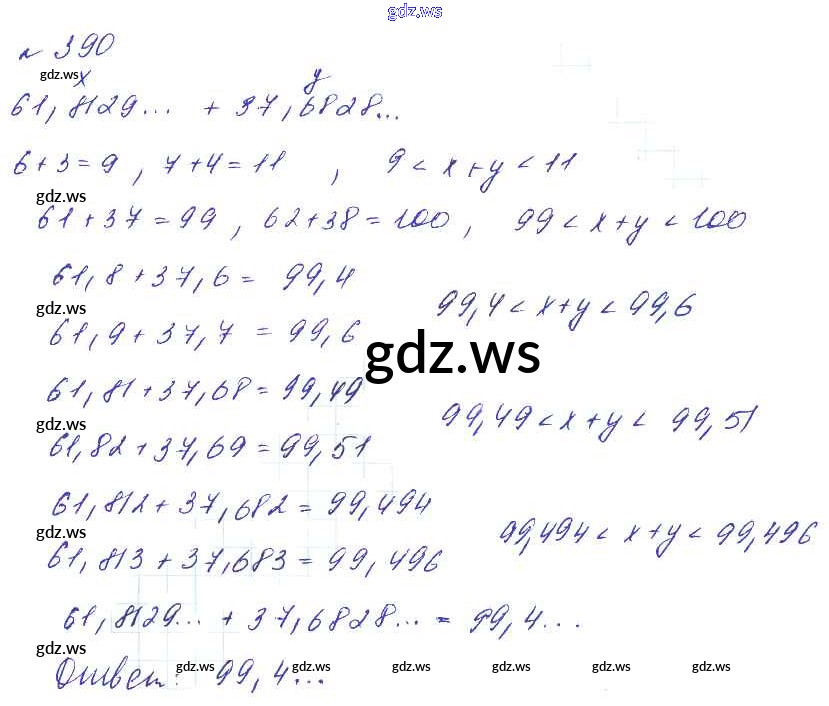 gdz.ws
№ 390
gdz.ws
x y
61,8129... + 37,6828...
6+3=9, 7+4=11, 9 < x+y < 11
gdz.ws
61+37=99, 62+38=100, 99 < x+y < 100
61,8+37,6= 99,4
99,4 < x+y < 99,6
gdz.ws
61,9+37,7 = 99,6
gdz.ws
61,81+37,68=99,49
99,49 < x+y < 99,51
gdz.ws
61,82+37,69=99,51
61,812+37,682=99,494
99,494 < x+y < 99,496
gdz.ws
61,813+37,683=99,496
61,8129... + 37,6828... = 99,4...
gdz.ws
gdz.ws gdz.ws gdz.ws gdz.ws gdz.ws
Ответ: 99,4...